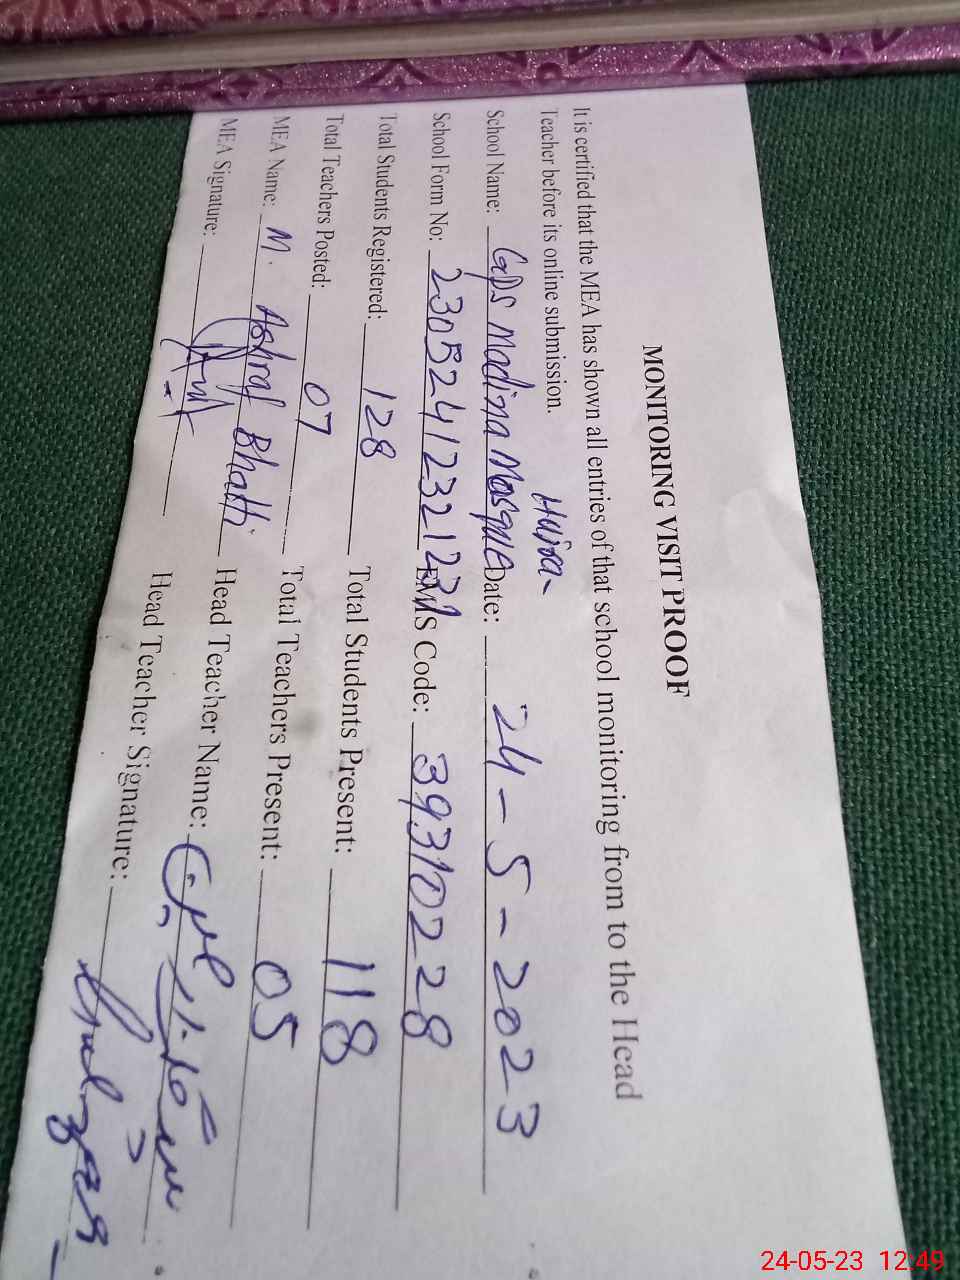 MONITORING VISIT PROOF
It is certified that the MEA has shown all entries of that school monitoring from to the Head
Teacher before its online submission.
School Name: GPS Madina Mosque Date: 24-5-2023
School Form No: 23052412321231 EMIS Code: 39310228
Total Students Registered: 128 Total Students Present: 118
Total Teachers Posted: 07 Total Teachers Present: 05
MEA Name: M. Ashraf Bhatti Head Teacher Name:
MEA Signature: Head Teacher Signature:
24-05-23 12:49